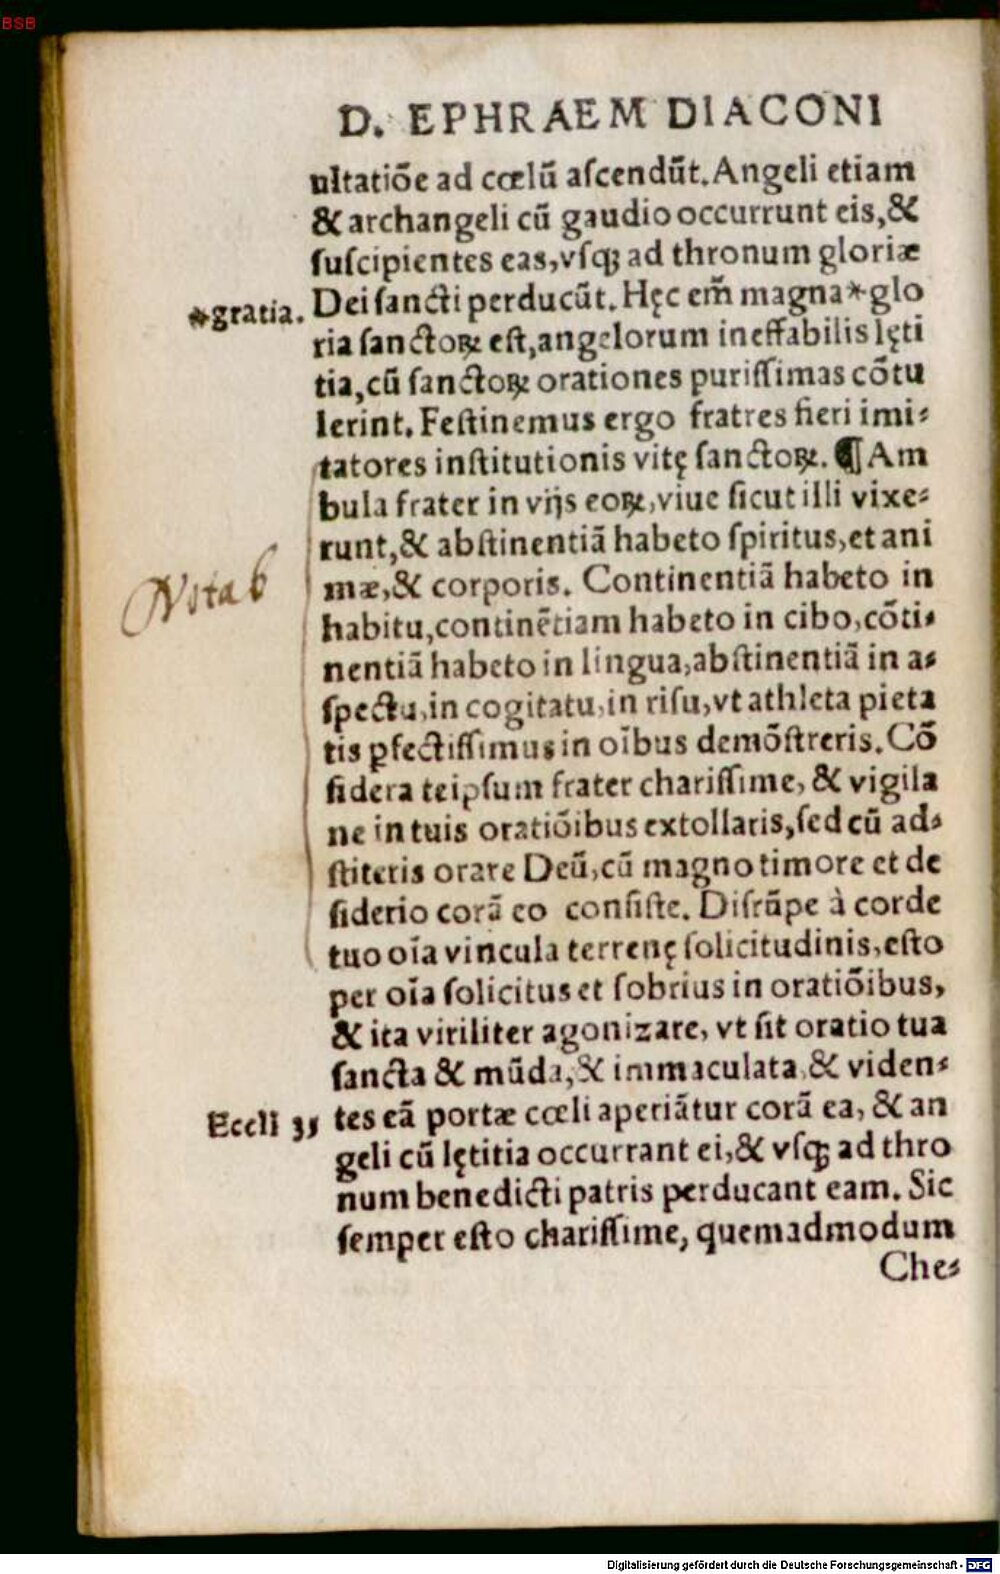 BSB
D. EPHRAEM DIACONI
ultatiõe ad cœlũ aſcendũt. Angeli etiam
& archangeli cũ gaudio occurrunt eis, &
ſuſcipientes eas, vſqꝫ ad thronum gloriæ
*gratia.
Dei ſancti perducũt. Hęc em̃ magna * glo
ria ſanctoꝝ eſt, angelorum ineffabilis lęti
tia, cũ ſanctoꝝ orationes puriſſimas cõtu
lerint. Feſtinemus ergo fratres fieri imi⸗
tatores inſtitutionis vitę ſanctoꝝ. ¶ Am
bula frater in vijs eoꝝ, viue ſicut illi vixe⸗
runt, & abſtinentiã habeto ſpiritus, et ani
mæ, & corporis. Continentiã habeto in
Notab
habitu, continẽtiam habeto in cibo, cõti⸗
nentiã habeto in lingua, abſtinentiã in a⸗
ſpectu, in cogitatu, in riſu, vt athleta pieta
tis ꝑfectiſſimus in oĩbus demõſtreris. Cõ
ſidera teipſum frater chariſſime, & vigila
ne in tuis oratiõibus extollaris, ſed cũ ad⸗
ſtiteris orare Deũ, cũ magno timore et de
ſiderio corã eo conſiſte. Diſrũpe à corde
tuo oĩa vincula terrenę ſolicitudinis, eſto
per oĩa ſolicitus et ſobrius in oratiõibus,
& ita viriliter agonizare, vt ſit oratio tua
ſancta & mũda, & immaculata, & viden⸗
Eccli 35
tes eã portæ cœli aperiãtur corã ea, & an
geli cũ lętitia occurrant ei, & vſqꝫ ad thro
num benedicti patris perducant eam. Sic
ſemper eſto chariſſime, quemadmodum
Che⸗
Digitalisierung gefördert durch die Deutsche Forschungsgemeinschaft - DFG